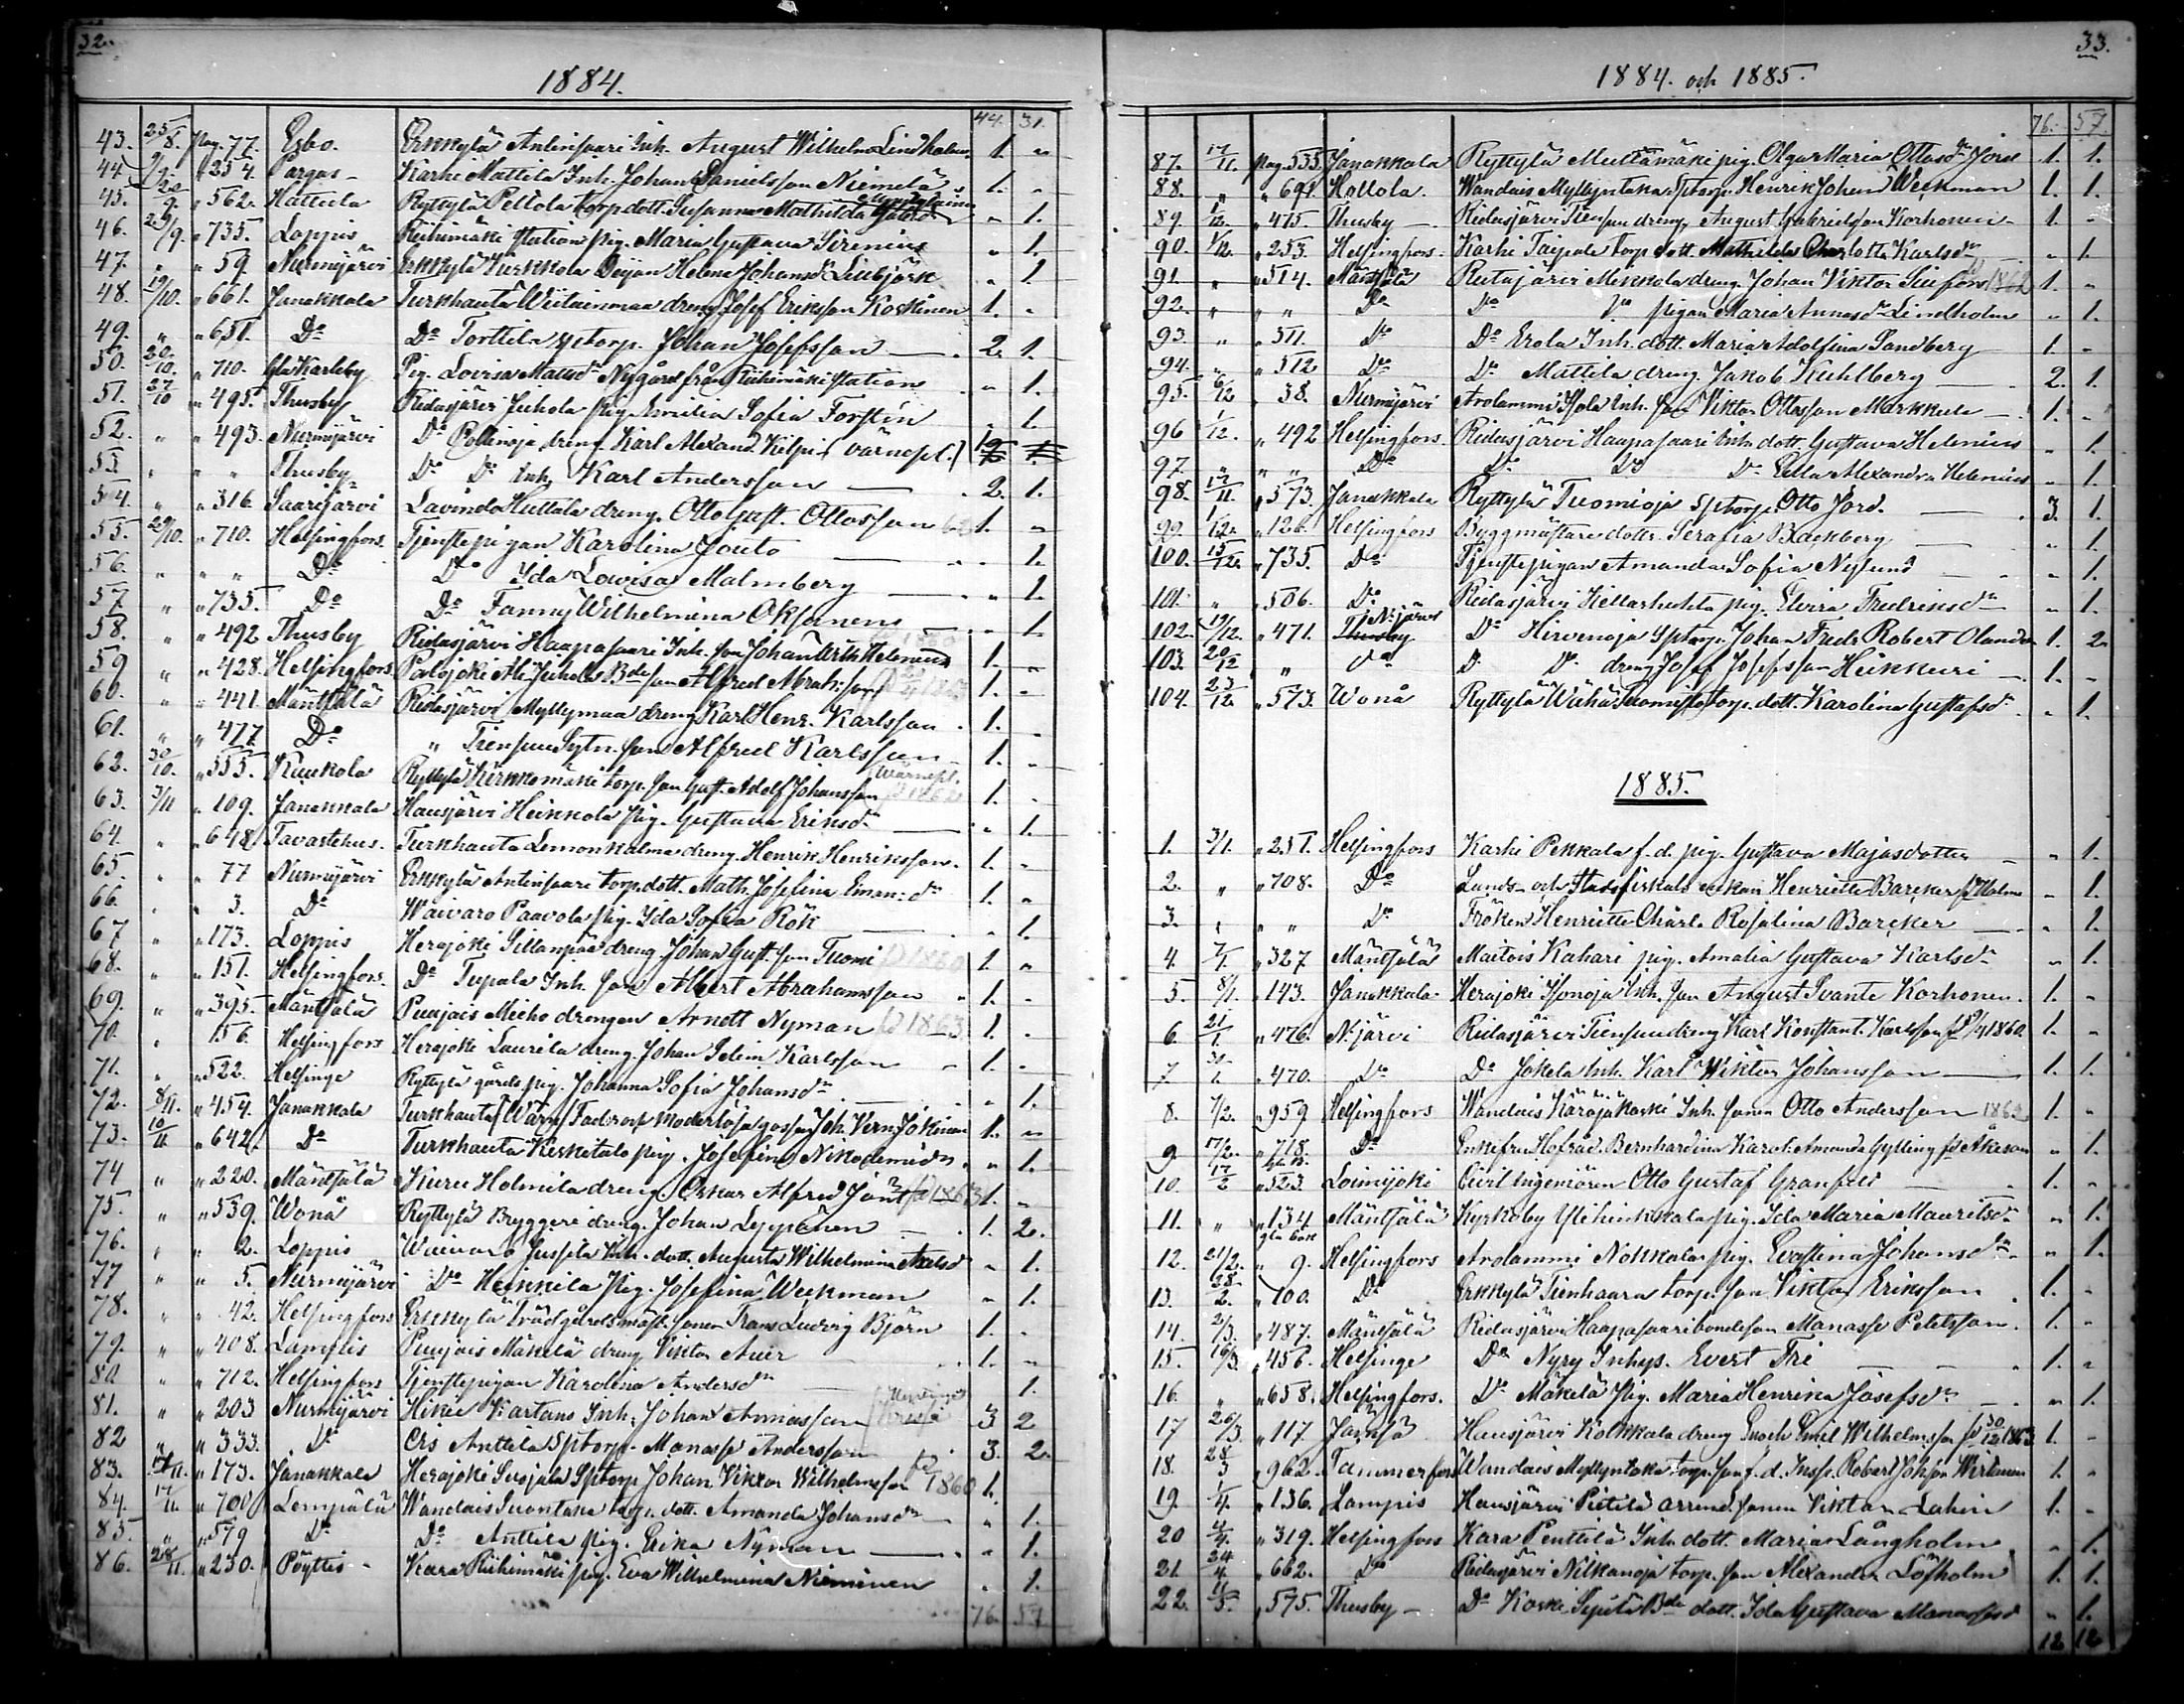 32.
1884.
44. 31.
43. 25/8. Pag. 77. Esbo. Erkkylä Antinsaari Inh. August Wilhelm Lindholm. 1. "
44. 254. Pargas - Karhi Mattila Inh. Johan Danielsson Niemelä 1. "
45. 562. Hattula Ryttylä Pellola torp.dott. Susanna Mathilda " 1.
46. 29/9. " 735. Loppis Riihimäki station pig. Maria Gustava Sirenius " 1.
47. " " 59. Nurmijärvi Erkkylä Helena Johansd. " 1.
48. 19/10. " 661. Janakkala Turkhauta Wiitainmaa dreng Josef Eriksson Koskinen 1. "
49. " " 651. Do Do Torttila sptorp. Johan Josefsson 2. 1.
50. 20/10. " 710. Gla Karleby Pig. Lovisa Mattsdr Nygård från Riihimäki Station " 1.
51. 27/10 " 495. Thusby Ridasjärvi Juhola pig. Emilia Sofia Forstén " 1.
52. " " 493. Nurmijärvi Do dreng Karl Alexand. Kilpi (värnepl.)
53. " " " Thusby Do Do Inh. Karl Andersson 2. 1.
54. " " 316. Saarijärvi Lavinto Huttala dreng. Otto Gust. Ottosson 62 1. "
55. 29/10. " 710. Helsingfors. Tjenstepigan Karolina Jouto " 1.
56. " " " Do Do Ida Lowisa Malmberg " 1.
57 " " 735. Do Do Fanny Wilhelmina Oksanen " 1.
58. " " 492 Thusby Ridasjärvi Haapasaari Inh. son Johan Helenius 1. "
59 " " 428. Helsingfors Palojoki Ali Juhola Bde son Alfred Abrah:son 1. "
60. " " 441. Mäntsälä Ridasjärvi Myllymaa dreng Karl Henr. Karlsson 1. "
61. " " 477 Do " Tiensuu Sytn. son Alfred Karlsson 1. "
62. 30/10. " 555. Ryttylä Kirkkomäki torp. son Gust. Adolf Johansson (Wärnepl. 1. "
63. 3/11 " 109. Janakkala Hausjärvi Heinkkola pig. Gustava Eriksdr " 1.
64. " " 648. Tavastehus. Turkhauta Lemonkalma dreng. Henrik Henriksson. 1. "
65. " " 77 Nurmijärvi Erkkylä Antinsaari torp.dott. Math. Josefina Eman:dr 1. "
66. " " 3. Do Waivaro Paavola pig. Ida Sofia Rök " 1.
67 " " 173. Loppis Herajoki Sillanpää dreng Johan Gust. son Tuomi 1860 1. "
68. " " 151. Helsingfors. Do Tupala Inh. son Albert Abrahamsson 1. "
69. " " 395. Mäntsälä Puujais Mieho drengen Arnett Nyman 1863 1. "
70. " 156. Helsingfors Herajoki Laurila dreng. Johan Selim Karlsson 1. "
71. " " 522. Helsinge Ryttylä gårds pig. Johanna Sofia Johansdr " 1.
72. 8/11. " 454. Janakkala Turkhauta moderlösa gossen Joh. Vern. Jokinen 1. "
73. 10/11 " 642. Do Turkhauta Keskitalo pig. Josefina Nikodemidr " 1.
74 " " 220. Mäntsälä Kuru Holmila dreng. Oskar Alfred 1863 1. "
75. " " 539. Wonå Ryttylä Bryggeri dreng. Johan Leppänen 1. 2.
76. " " 2. Loppis Waivaro Jussila Inh. dott. Augusta Wilhelmina Axelsd " 1.
77 " " 5. Nurmijärvi Do Heinkilä pig. Josefina Weckman " 1.
78. " " 42. Helsingfors Erkkylä Trädgårdsmäst. sonen Frans Ludvig Björn 1. "
79. " " 408. Lampis Puujais Mäkelä dreng Viktor Auer 1. "
80 " " 712. Helsingfors Tjenstepigan Karolina Andersdr 1.
81. " " 203 Nurmijärvi Hikiä Kartano Inh. Johan Annasson 3 2
82 " " 333. Do Ers Anttila Sptorp. Manasse Andersson 3. 2.
83. " 173. Janakkala Herajoki Suojala Sptorp Johan Viktor Wilhelmsson 1860 1.
84. 17/11. " 700 Lempälä Wandais Suontaka torp. dott. Amanda Johansdr " 1.
85. " " 579 Do Do Anttila pig. Erika Nyman " 1.
86. 28/11. " 230. Pöyttis - Kara Riihimäki pig. Eva Wilhelmina Nieminen " 1.
76. 57
33.
1884. och 1885.
76. 57.
87. 17/11. pag. 535. Janakkala Ryttylä Multamäki pig. Olga Maria Ottosdr Jord 1. 1.
88. " " 691. Hollola. Wandais Myllyntaka Sptorp. Henrik Johan Weckman 1. 1.
89. 1/12. " 475 Thusby - Ridasjärvi Tiensuu dreng August Gabrielsson Korhonen 1. "
90. 1/12. " 253. Helsingfors. Karhi Taipale torp dott. Mathilda Charlotta Karlsdr " 1.
91. " " 514. Mäntsälä Ridasjärvi Mikkola dreng. Johan Viktor 1862 1. "
92. " " " Do Do Do pigan Maria Annasdr Lindholm " 1.
93. " " 511. Do Do Erola Inh. dott. Maria Adolfina Sandberg 1. "
94. " " 512 Do Do Mattila dreng. Jakob Kuhlberg 2. 1.
95. 6/12 " 38. Nurmijärvi Arolammi Isola Inh. son Viktor Ottosson Markkula 1. "
96 1/12. " 492 Helsingfors. Ridasjärvi Haapasaari Inh. dott. Gustava Helenius " 1.
97. " " " Do Do Do Do Edla Alexandra Helenius " 1.
98. 17/11. " 573. Janakkala Ryttylä Tuomioja Sptorp. Otto Jord. 3. 1.
99. 1/12. " 126. Helsingfors Byggmästare dottr. Serafia Bäckberg " 1.
100. 15/12. " 735. Do Tjenstepigan Amanda Sofia Nylund " 1.
101. " " 506. Do Ridasjärvi Kellarhuhta pig. Elvira Fredriksdr " 1.
102. 19/12. " 471. N:järvi Do Hirvenoja Sptorp. Johan Fredr. Robert Olander 1. 2.
103. 20/12 " Do D. Do dreng Josef Josefsson Heikkuri 1. "
104. 23/12. " 573. Wonå Ryttylä Wähä Tuomisto torp. dott. Karolina Gustafsdr " 1.
1885.
1. 3/1. " 251. Helsingfors Karhi Pekkala f.d. pig. Gustava Majasdotter " 1.
2. " " 708. Do Lands- och Stadsfiskals enkan Henriette Barcker f. Holm " 1.
3. " " " Do Fröken Henriette Charl. Rosalina Barcker " 1.
4. 7/1. " 327 Mäntsälä Maitois Kahari pig. Amalia Gustava Karlsdr " 1.
5. 8/1. " 143. Janakkala Herajoki Isonoja Inh. son August Svante Korhonen. 1. "
6. 21/1 " 476. N:järvi Ridasjärvi Tiensuu dreng Karl Konstant. Karlsson 1860. 1. "
7 30/1. " 470. Do Do Jokela Inh. Karl Wiktor Johansson 1. 1.
8. 7/2. " 959. Helsingfors Wandais Käräjäkoski Inh. sonen Otto Andersson 1862 1. "
9 17/2. " 718. Do Enkefru Hofråd. Bernhardina Karol. Amanda Gylling f. Åkeson " 1.
10. 17/2 " 523. Loimijoki Civil Ingeniören Otto Gustaf Granfelt 1. "
11. " " 134 Mäntsälä Kyrkoby Ylihinkkala pig. Ida Maria Mauritsdr " 1.
12. 21/2. " 9. Helsingfors Arolammi Nokkala pig. Evastina Johansdr " 1.
13. 28/2. " 100. Do Erkkylä Tienhaara torp. son Viktor Eriksson 1. "
14. 2/3. " 487. Mäntsälä Ridasjärvi Haapasaari bondeson Manasse Petersson. 1. "
15. " 456. Helsinge Do Nyry Inhys. Evert Fri 1. "
16. " " 658. Helsingfors. Do Mäkelä pig. Maria Henrika Josefsdr " 1.
17 26/3. " 117 Jämsä Hausjärvi Kolkkala dreng Enoch Emil Wilhelmsson f. 30/12 1863 1. "
18. 28/3 " 962. Tammerfors Wandais Myllyntaka torp. son f.d. Insp. Robert Johsson Wirtanen 1. "
19. 1/4. " 136. Lampis Hausjärvi Pietilä arrend. sonen Viktor Lahin 1. "
20 4/4. " 319. Helsingfors Kara Penttilä Inh. dott. Maria Långholm " 1.
21. 24/4. " 662. Do Ridasjärvi Nilkanoja torp. son Alexander Löfholm 1. 1.
22. 11/5. " 575. Thusby - Do Koski Sipilä Bde dott. Ida Gustava Manassesd " 1.
12 12